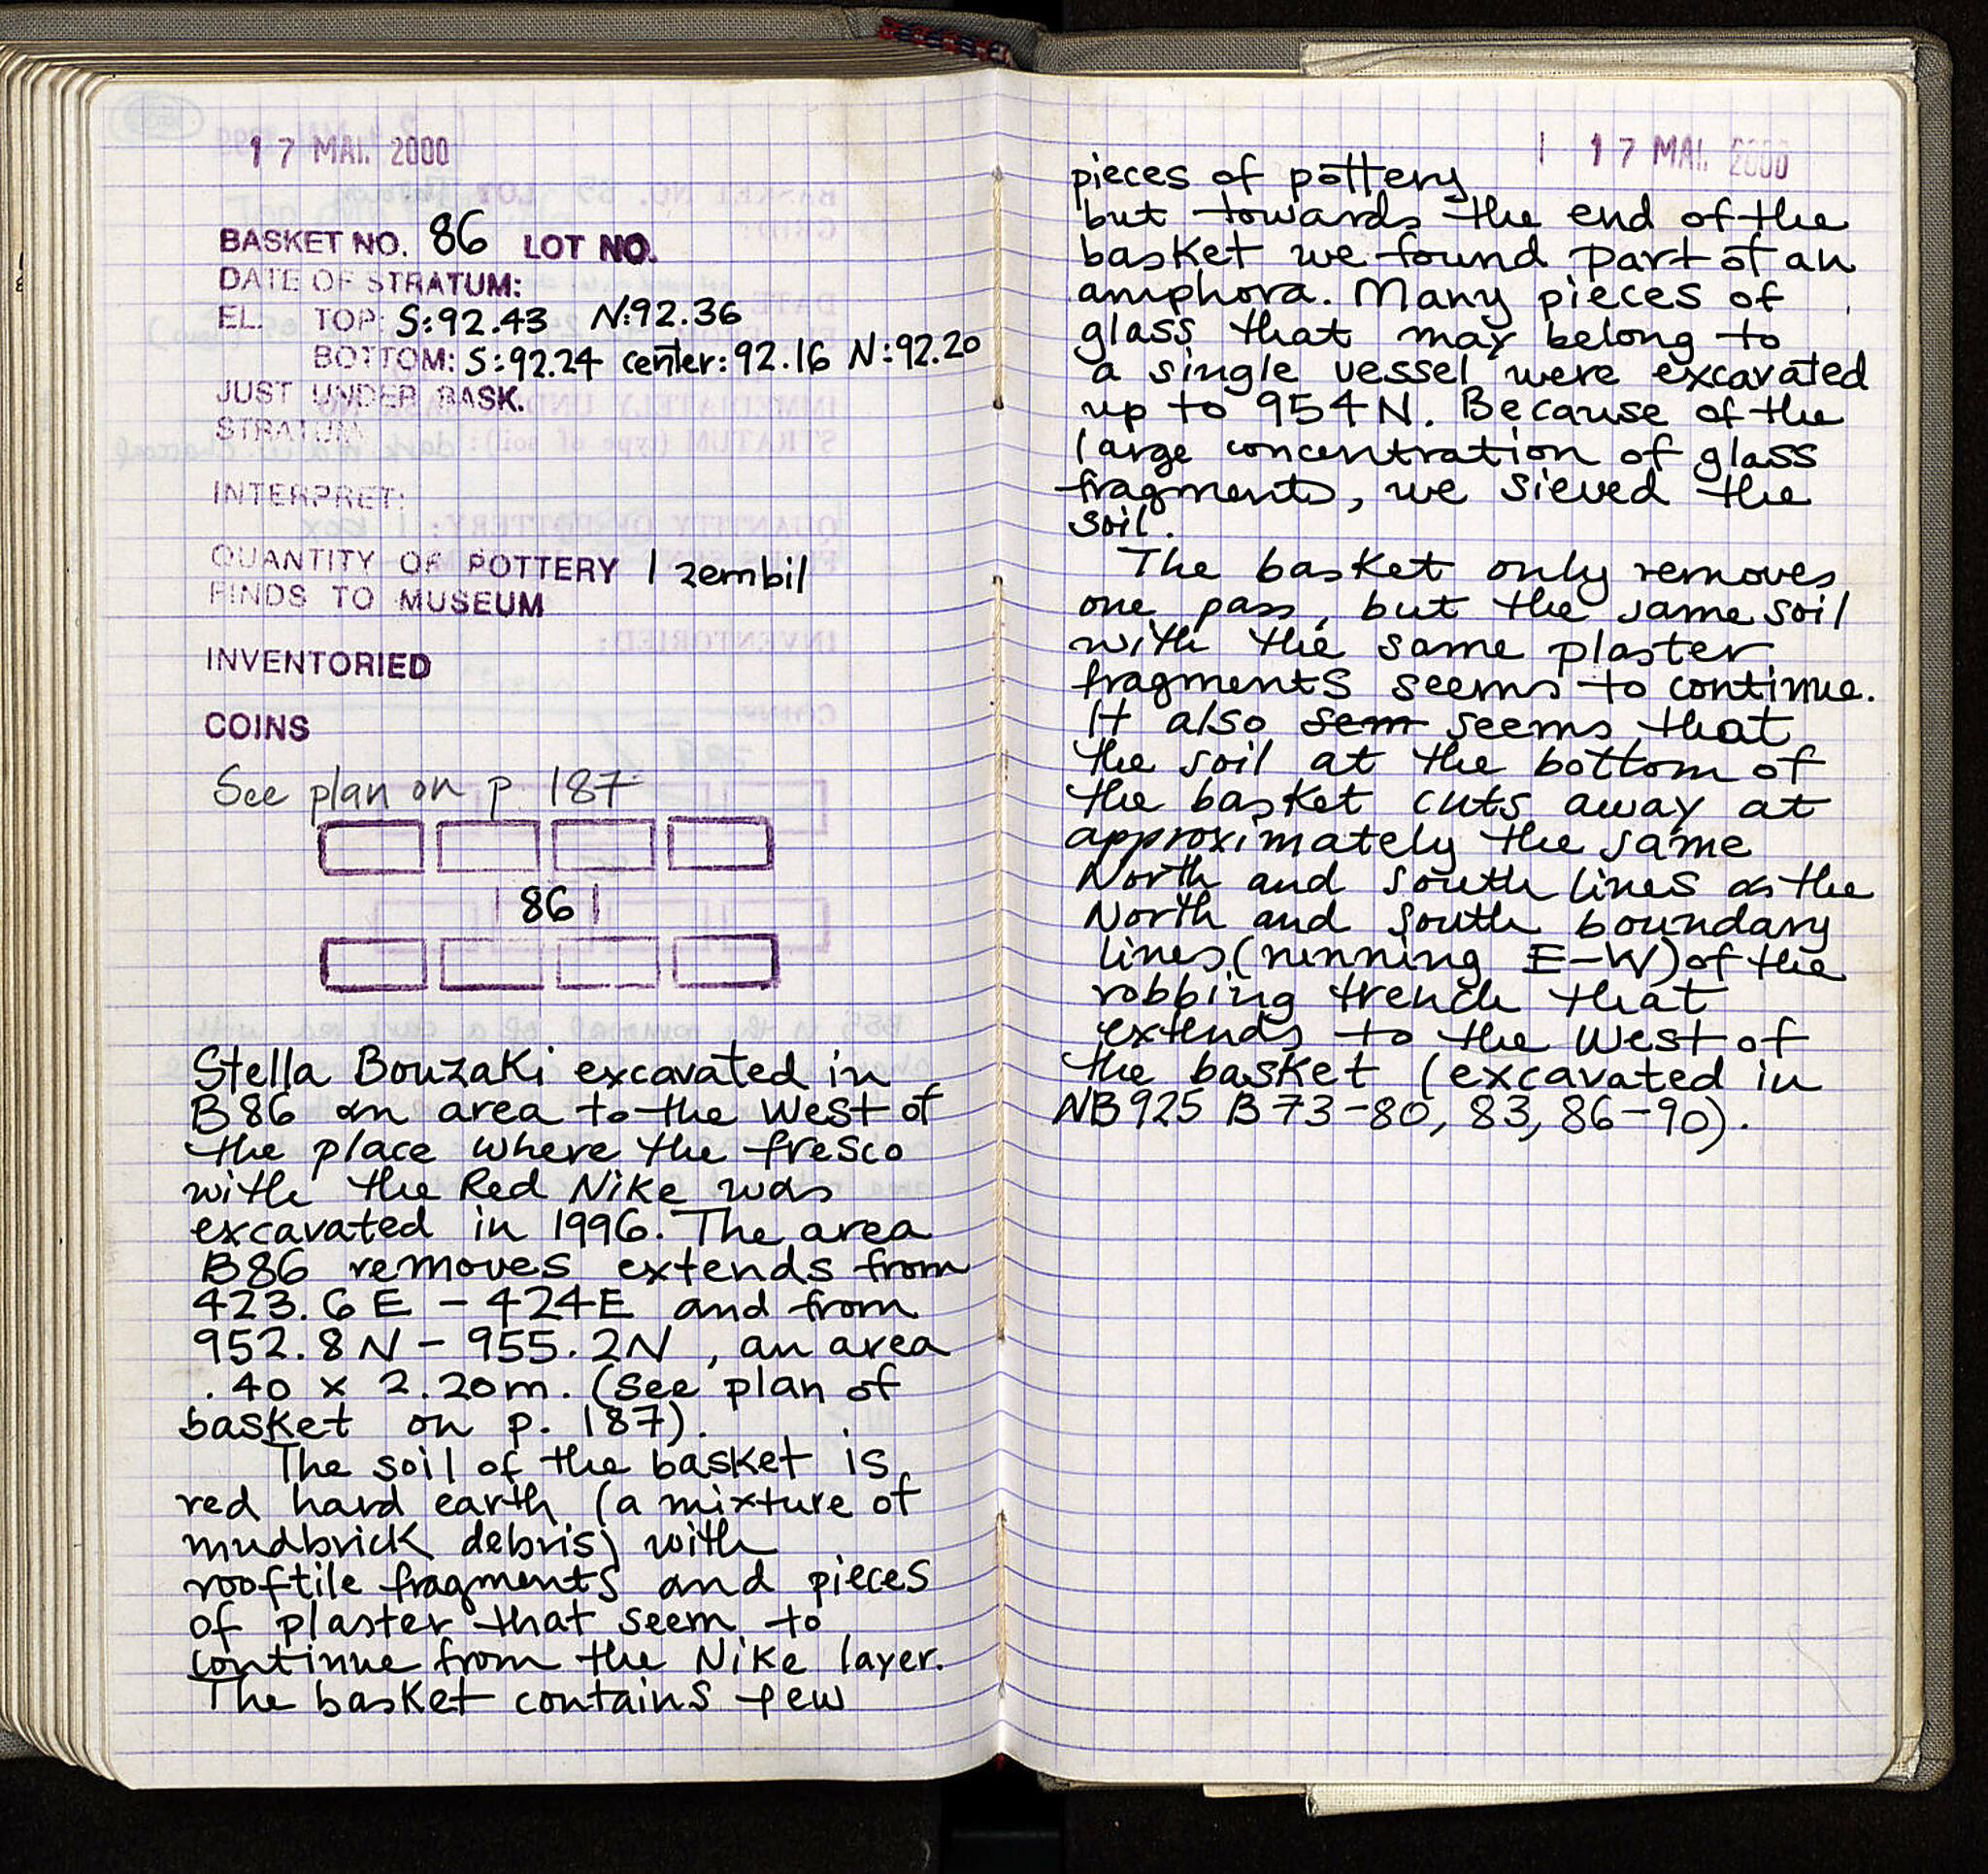 17 MAI. 2000
BASKET NO. 86 LOT NO.
DATE OF STRATUM:
EL. TOP: S:92.43 N:92.36
BOTTOM: S:92.24 center:92.16 N:92.20
JUST UNDER BASK.
STRATUM
INTERPRET:
QUANTITY OF POTTERY 1 zembil
FINDS TO MUSEUM
INVENTORIED
COINS
See plan on p. 187
86
Stella Bouzaki excavated in
B86 an area to the West of
the place where the fresco
with the Red Nike was
excavated in 1996. The area
B86 removes extends from
423.6E - 424E and from
952.8N - 955.2N, an area
.40 x 2.20m. (see plan of
basket on p. 187).
The soil of the basket is
red hard earth (a mixture of
mudbrick debris) with
rooftile fragments and pieces
of plaster that seem to
continue from the Nike layer.
The basket contains few
17 MAI. 2000
pieces of pottery
but towards the end of the
basket we found part of an
amphora. Many pieces of
glass that may belong to
a single vessel were excavated
up to 954N. Because of the
large concentration of glass
fragments, we sieved the
soil.
The basket only removes
one pass, but the same soil
with the same plaster
fragments seems to continue.
It also sem seems that
the soil at the bottom of
the basket cuts away at
approximately the same
North and South lines as the
North and South boundary
lines (running E-W) of the
robbing trench that
extends to the West of
the basket (excavated in
NB925 B73-80, 83, 86-90).